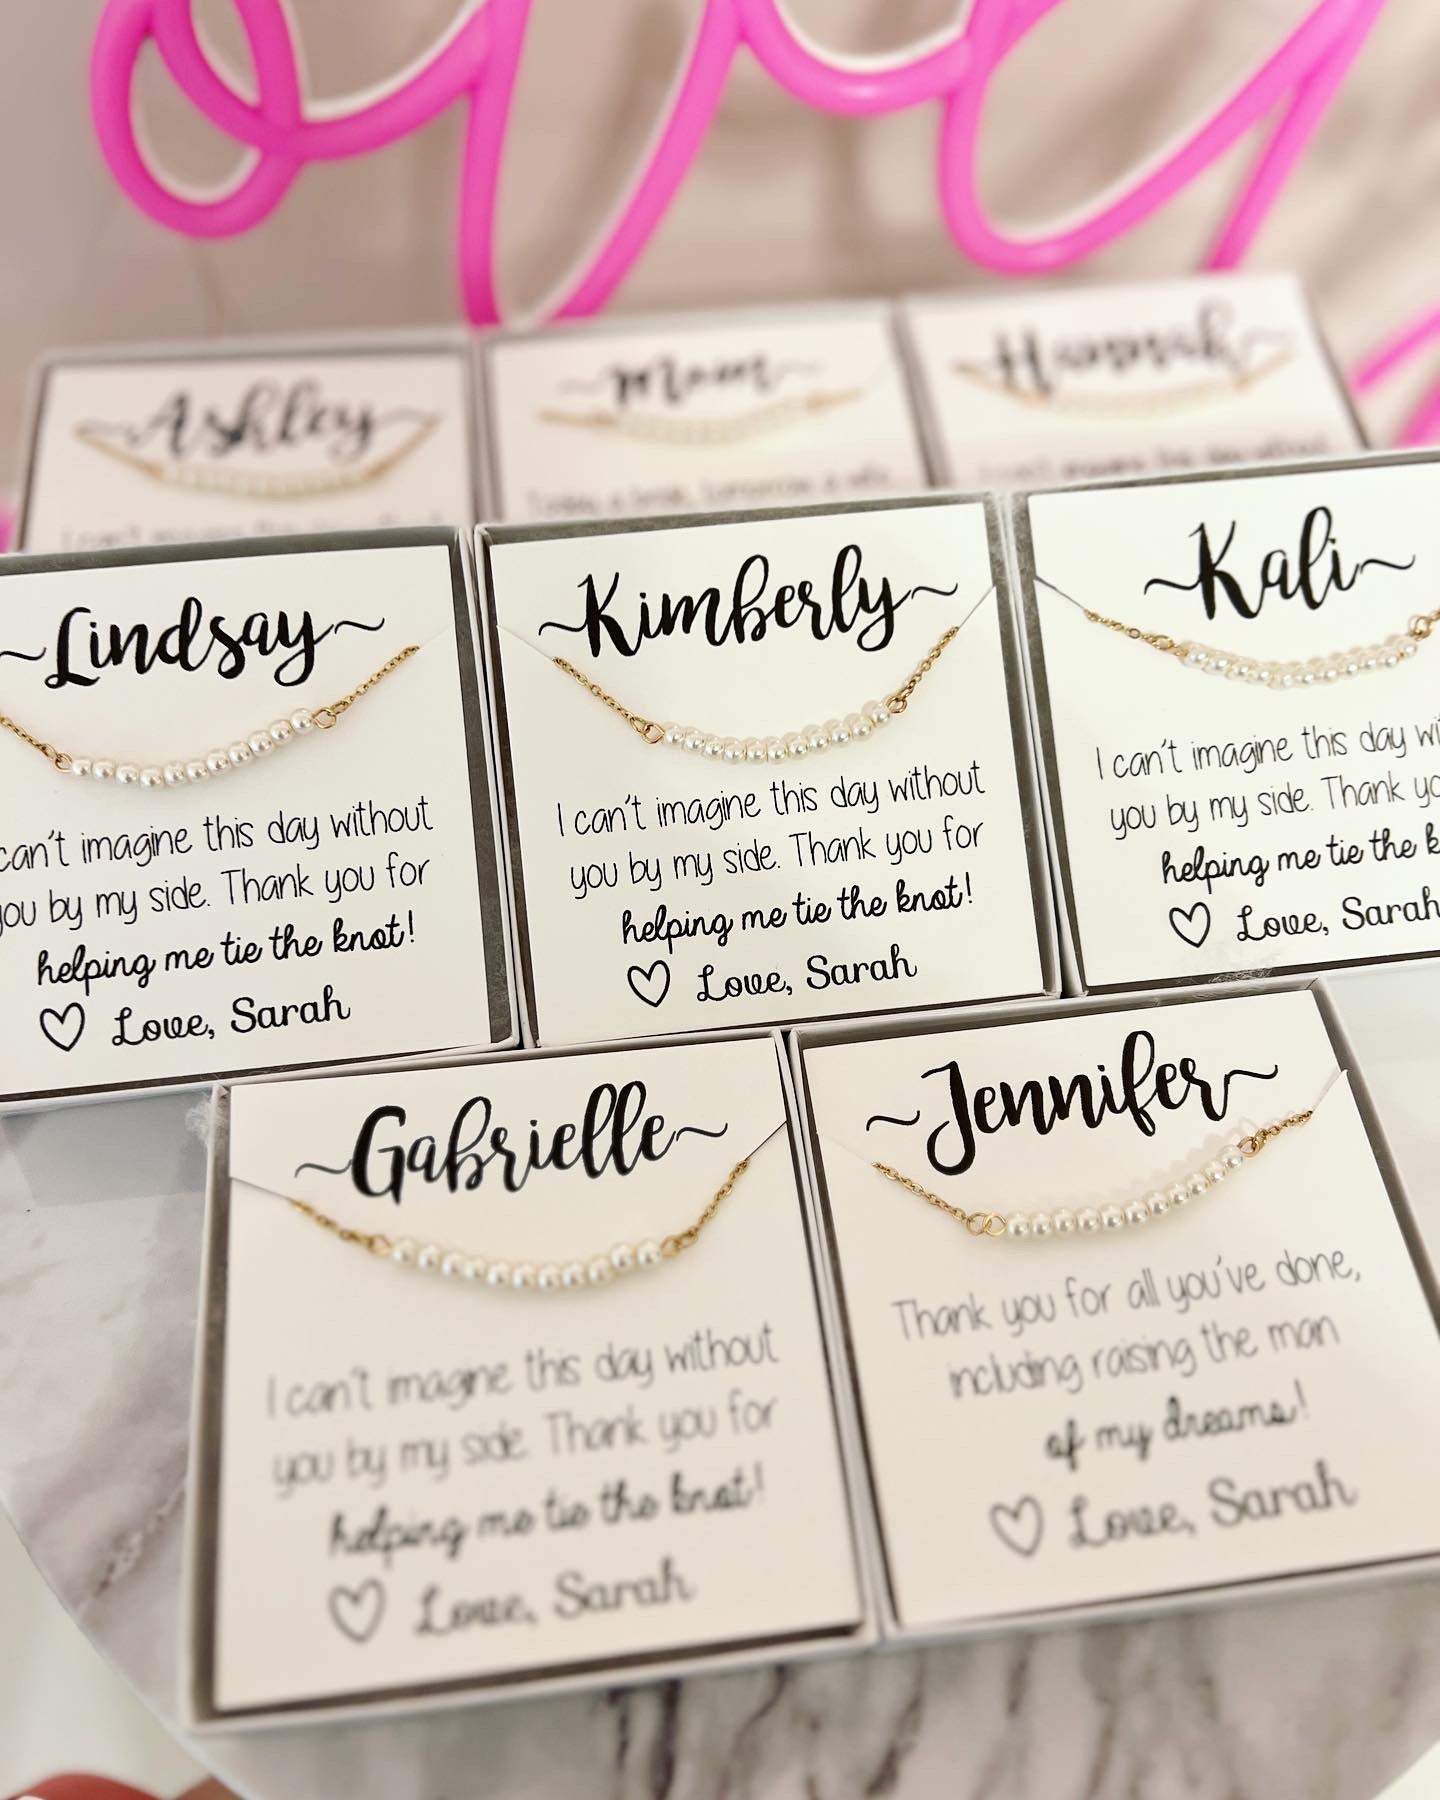 Ashley
Mom
Hannah
I can't imagine this day without
Today a bride, tomorrow a wife
I can't imagine this day without
~Lindsay~
can't imagine this day without
you by my side. Thank you for
helping me tie the knot!
♡ Love, Sarah
~Kimberly~
I can't imagine this day without
you by my side. Thank you for
helping me tie the knot!
♡ Love, Sarah
~Kali~
I can't imagine this day
you by my side. Thank
helping me tie the
♡ Love, Sarah
~Gabrielle~
I can't imagine this day without
you by my side. Thank you for
helping me tie the knot!
♡ Love, Sarah
~Jennifer~
Thank you for all you've done,
including raising the man
of my dreams!
♡ Love, Sarah